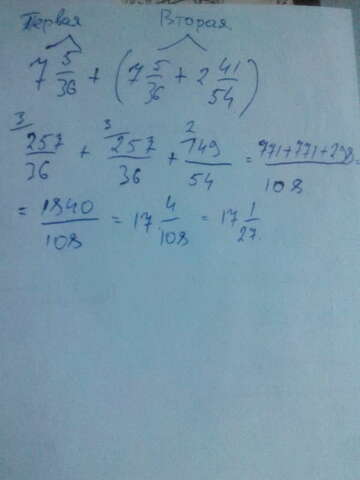 Первая Вторая
7 5/36 + (7 5/36 + 2 41/54)
3 257/36 + 3 257/36 + 2 149/54 = 771+771+298/108 =
= 1840/108 = 17 4/108 = 17 1/27.